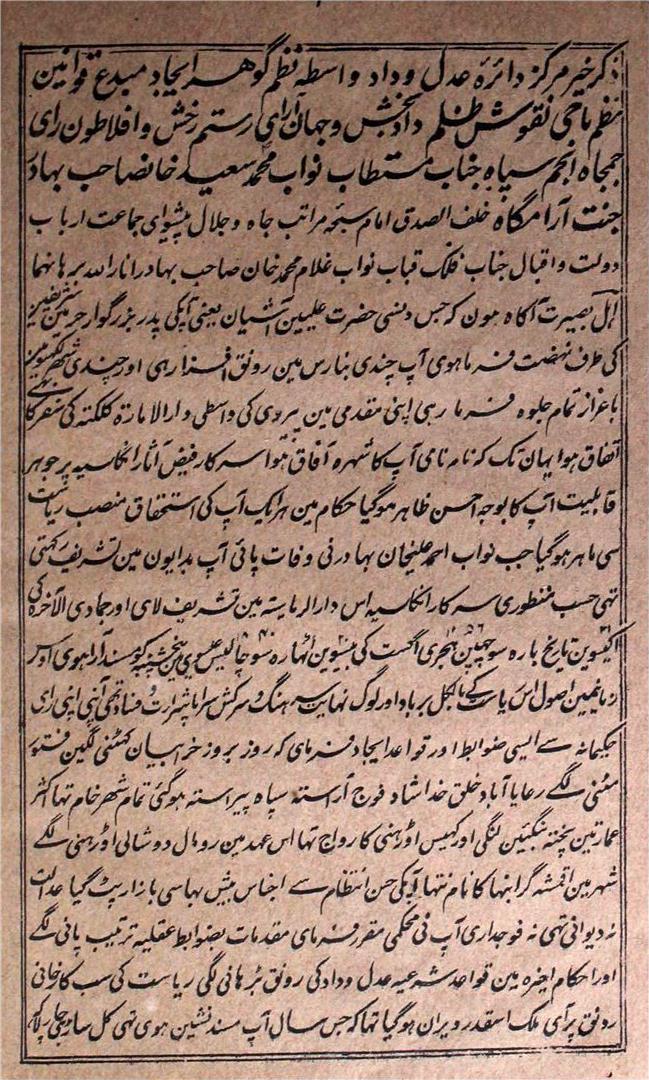 ذکر خیر مرکز دائرۂ عدل و داد واسطہ نظم گوہر ایجاد مبدع قوانین
نظم ماحی نقوش ظلم داد بخش و جہان آرای رستم رخش و افلاطون رای
جمجاہ انجم سپاہ جناب مستطاب نواب محمد سعید خانصاحب بہادر
جنت آرامگاہ خلف الصدق امام سبحہ مراتب جاہ و جلال پیشوای جماعت ارباب
دولت و اقبال جناب فلک قباب نواب غلام محمد خان صاحب بہادر انار اللہ برہانہما
اہل بصیرت آگاہ ہون کہ جس دنسی حضرت علیین آشیان یعنی آپکی پدر بزرگوار حرمین شریفین
کی طرف نہضت فرما ہوی آپ چندی بنارس مین رونق افزا رہی اور چندی شہر لکھنو مین
باعزاز تمام جلوہ فرما رہی اپنی مقدمی مین پیروی کی واسطی دار الامارۃ کلکتہ کی سفر کا
اتفاق ہوا یہان تک کہ نام نامی آپ کا شہرہ آفاق ہوا سرکار فیض آثار انگلسیہ پر جوہر
قابلیت آپ کا بوجہ احسن ظاہر ہوگیا حکام مین ہر ایک آپ کی استحقاق منصب ریاست
سی ماہر ہوگیا جب نواب احمد علیخان بہادر نی وفات پائی آپ بدایون مین تشریف رکہتی
تہی حسب منظوری سرکار انگلسیہ اس دار الریاستہ مین تشریف لای اور جمادی الآخرہ کی
اکیسوین تاریخ بارہ سو چہپن ہجری اگست کی بیسوین اٹہارہ سو چالیس عیسوی مین پنجشنبہ کو مسند آرا ہوی اوس
زمانیمین اصول اس ریاست کے بالکل برباد اور لوگ نہایت سرہنگ و سرکش سراپا شرارت و فساد تہی آپنی اپنی رای
حکیمانہ سے ایسی ضوابط اور قواعد ایجاد فرمای کہ روز بروز خرابیان گہٹنی لگین فتور
مٹنی لگے رعایا آباد خلق خدا شاد فوج آراستہ سپاہ پیراستہ ہوگئی تمام شہر خام تہا اکثر
عمارتین پختہ بنگئین لنگی اور کہیس اوڑہنی کا رواج تہا اس عہد مین رومال دوشالی اوڑہنی لگے
شہر مین اقمشہ گرانبہا کا نام نتہا آپکی حسن انتظام سے اجناس بیش بہا سی بازار پٹ گیا عدالت
نہ دیوانی تہی نہ فوجداری آپ نی محکمی مقرر فرمای مقدمات بضوابط عقلیہ ترتیب پانی لگے
اور احکام اخیرہ مین قواعد شرعیہ عدل و داد کی رونق بڑہانی لگی ریاست کی سب کارخانی
رونق پر آی ملک اسقدر ویران ہوگیا تہا کہ جس سال آپ مسند نشین ہوی تہی کل